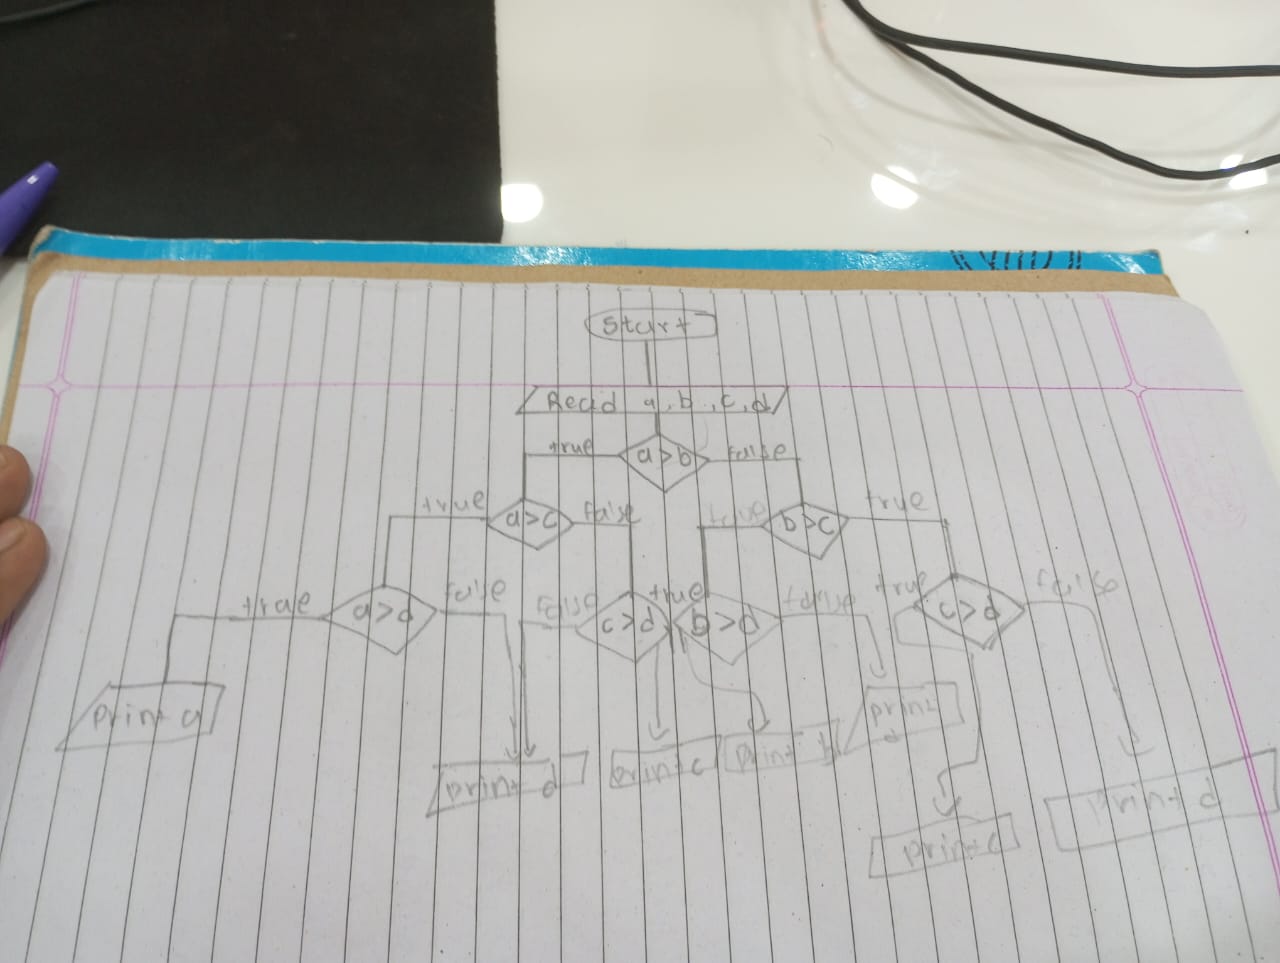 Start
Read a, b, c, d
true a>b false
true a>c false true b>c true
true a>d false false c>d true b>d false true c>d false
print a
print d
print c
print b
print d
print c
print d